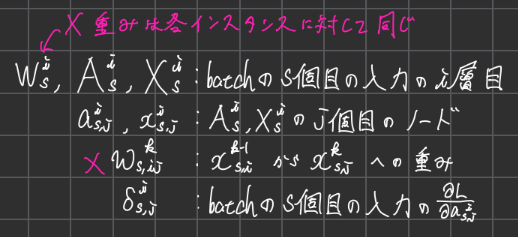 × 重みは各インスタンスに対して同じ
W_s^i, A_s^i, X_s^i : batchのs個目の入力のi層目
a_{s,j}^i, x_{s,j}^i : A_s^i, X_s^iのj個目のノード
× w_{s,ij}^k : x_{s,i}^{k-1} から x_{s,j}^k への重み
δ_{s,j}^i : batchのs個目の入力の ∂L/∂a_{s,j}^i